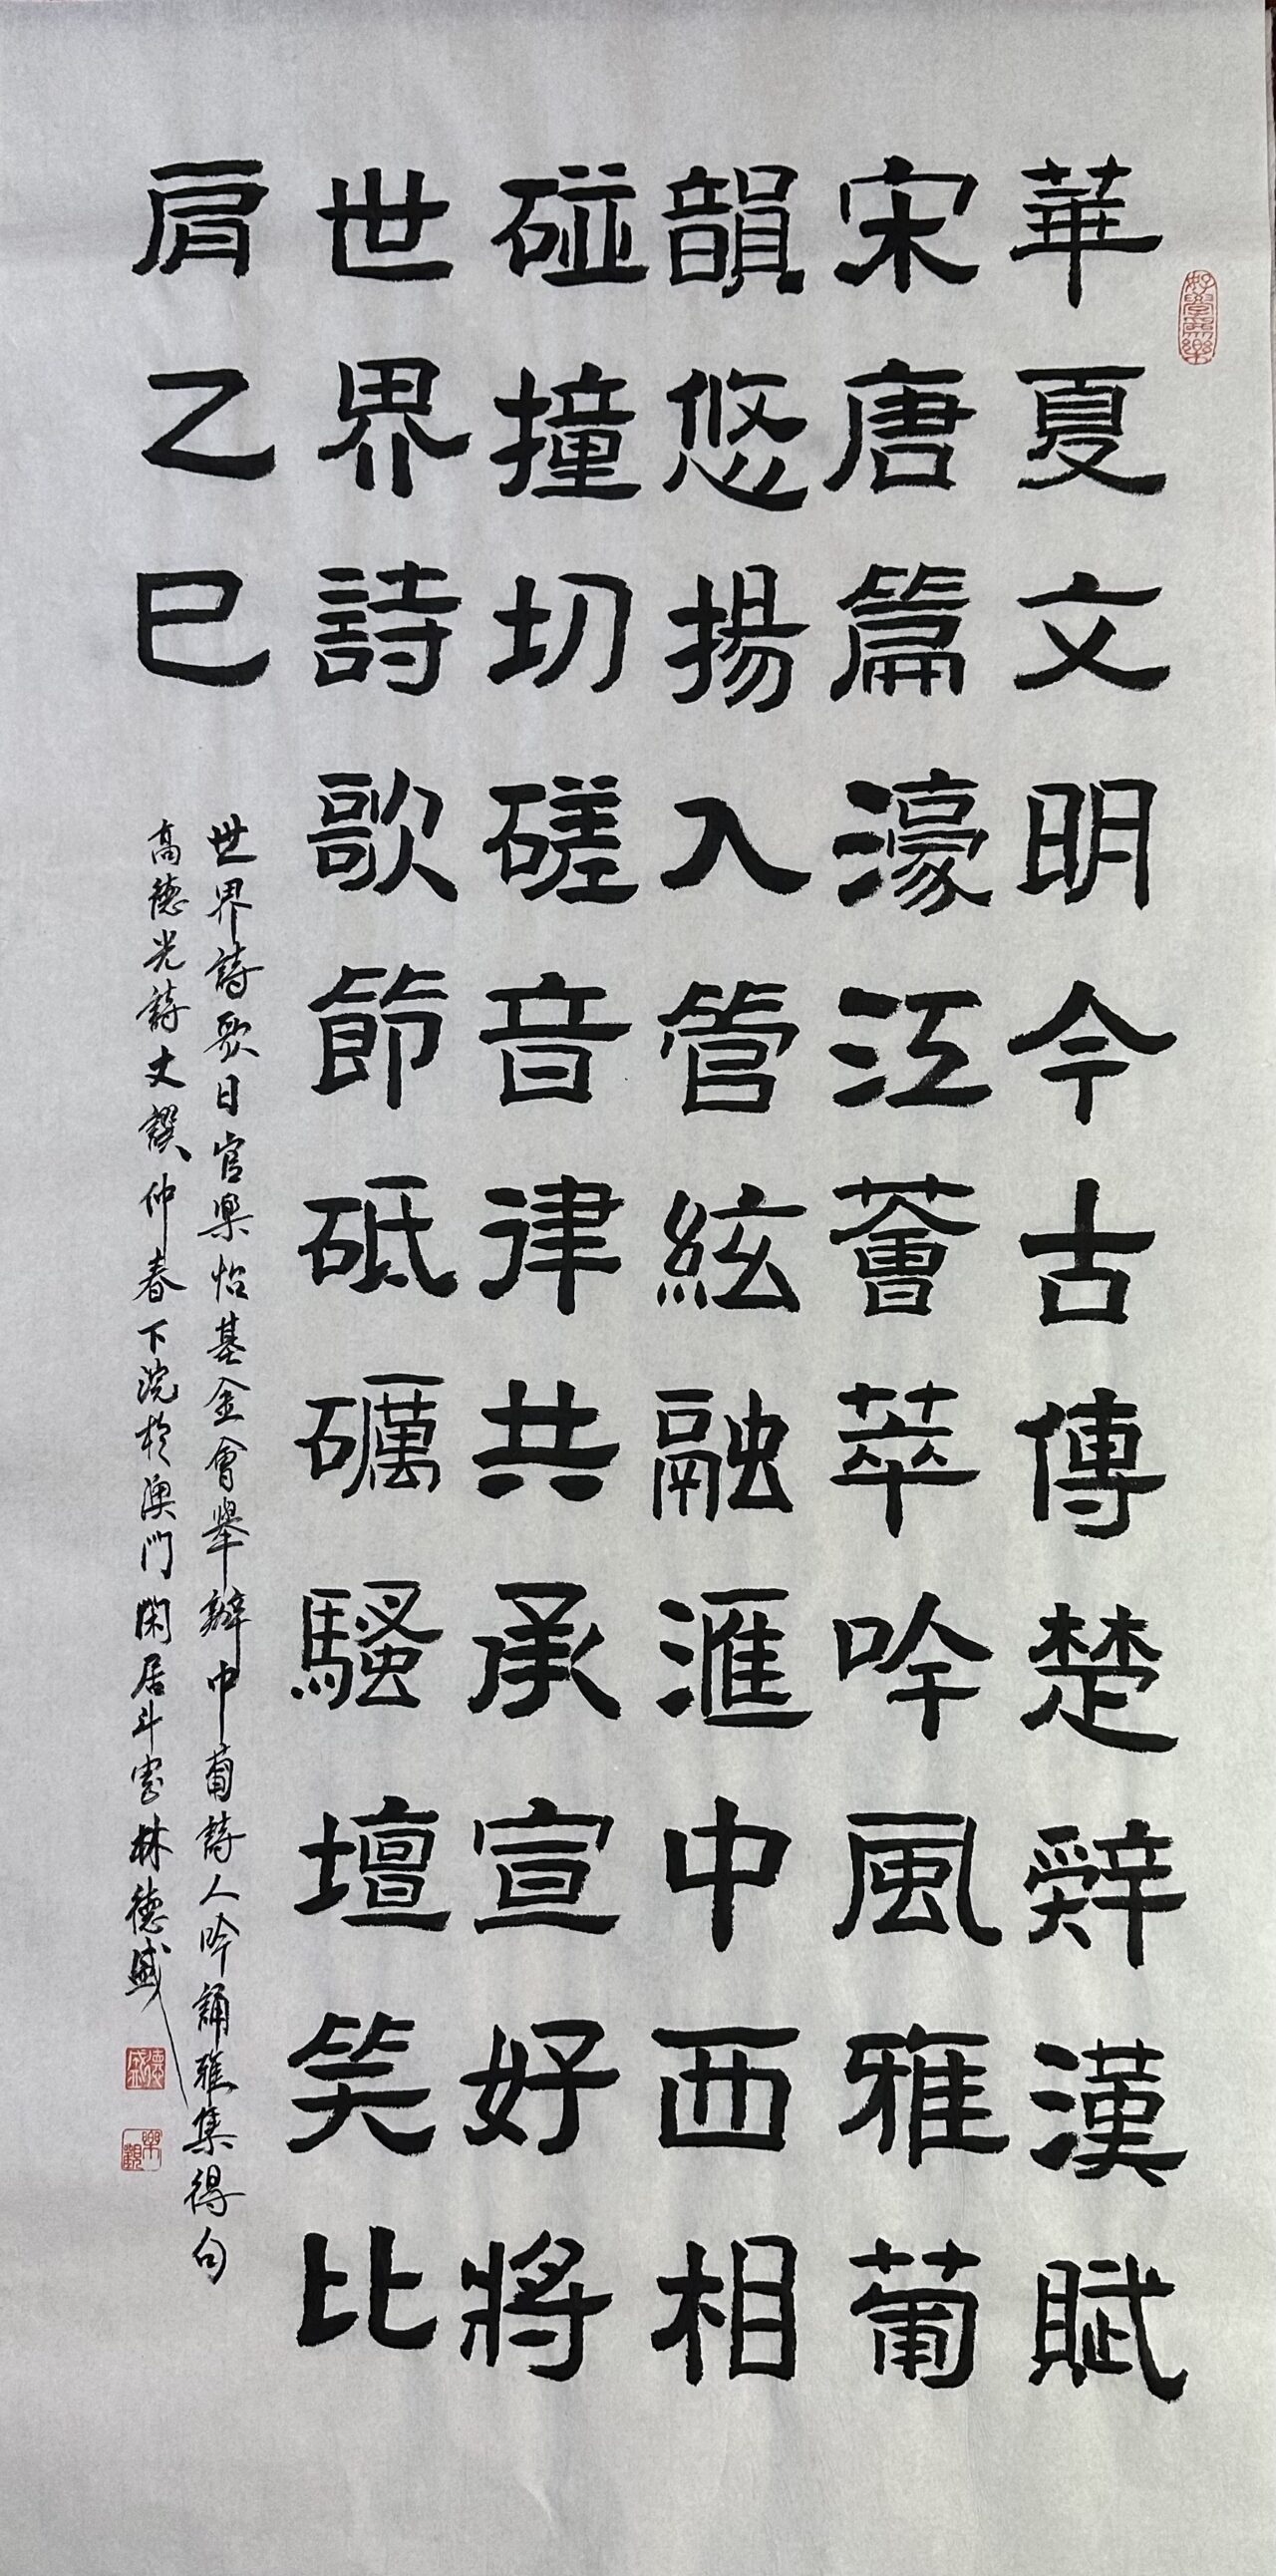 好學爲樂
華夏文明今古傳楚辭漢賦
宋唐篇濠江薈萃吟風雅葡
韻悠揚入管絃融滙中西相
碰撞切磋音律共承宣好將
世界詩歌節砥礪騷壇笑比
肩乙巳
世界詩歌日官樂怡基金會舉辦中葡詩人吟誦雅集得句
高德光詩丈譔仲春下浣於澳門閑居斗室林德盛
德盛
樂觀